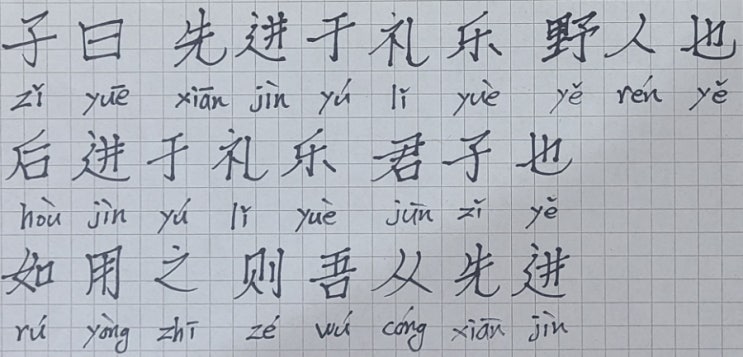 子曰 先进于礼乐 野人也
zǐ yuē xiān jìn yú lǐ yuè yě rén yě
后进于礼乐 君子也
hòu jìn yú lǐ yuè jūn zǐ yě
如用之 则吾从先进
rú yòng zhī zé wú cóng xiān jìn